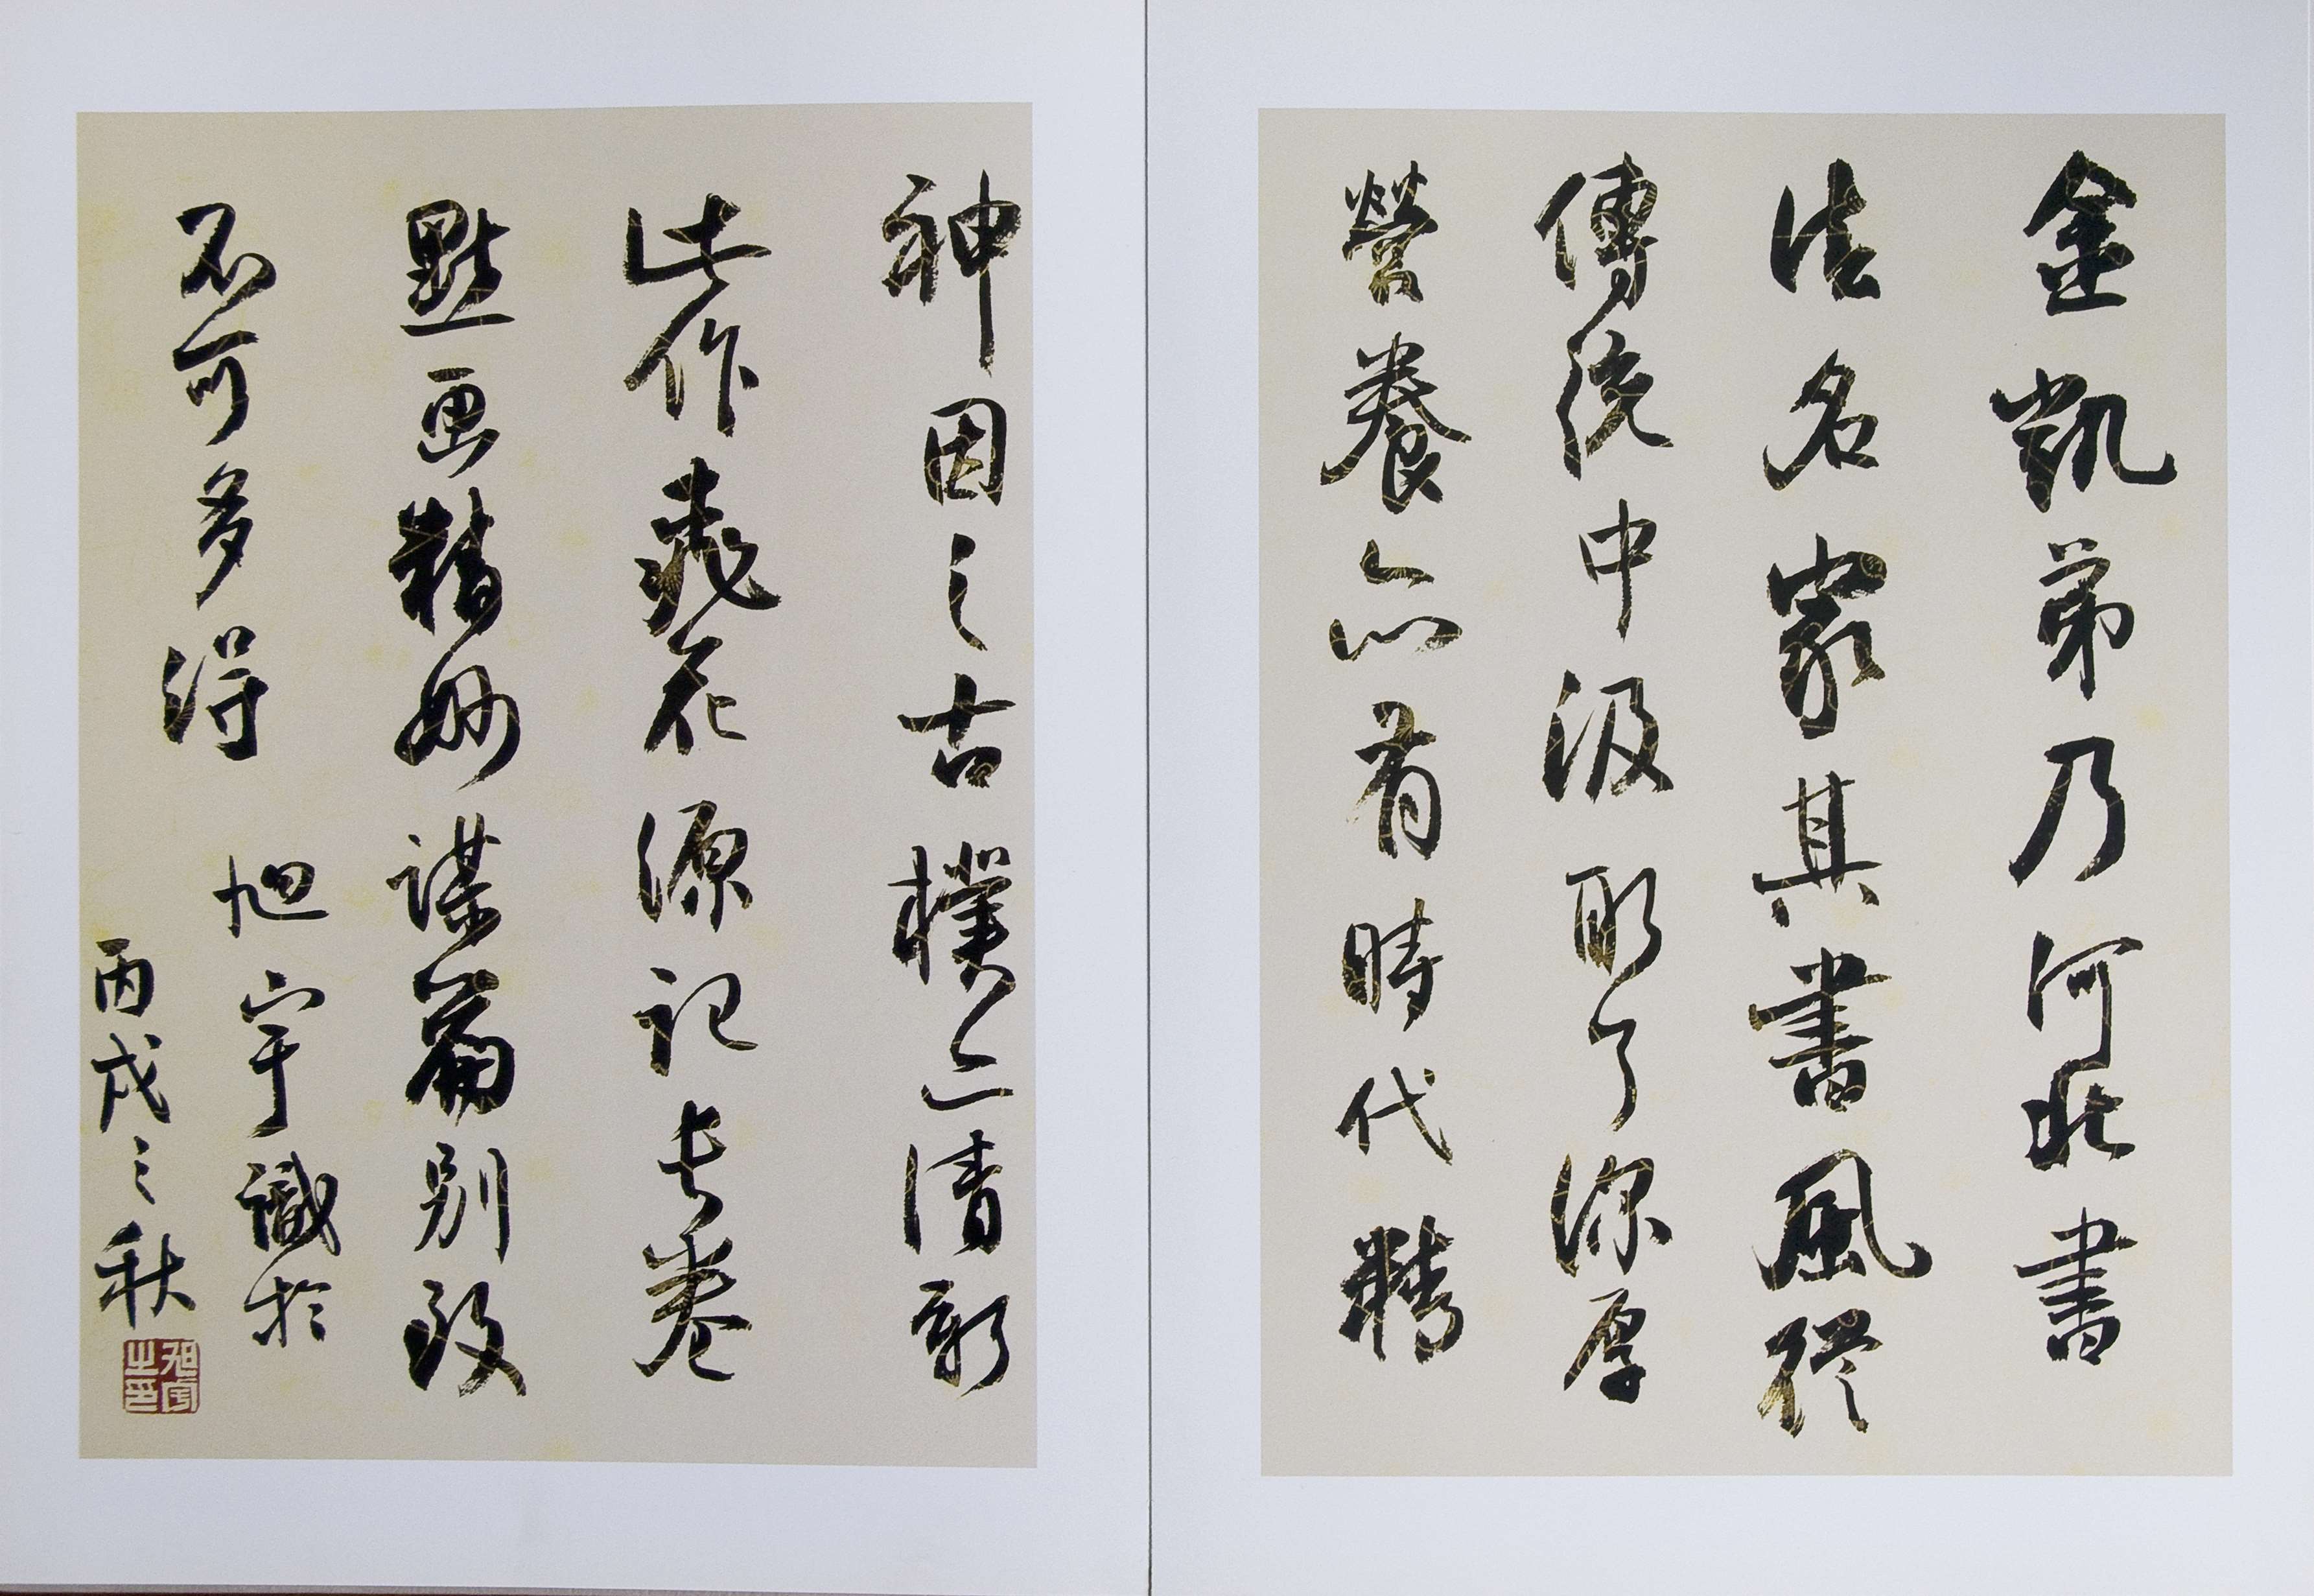 金凱弟乃河北書
法名家其書風從
傳統中汲取了深厚
營養亦有時代精
神因之古樸亦清新
此作桃花源記長卷
點画精妙謀篇別致
不可多得
旭宇識於
丙戌之秋
旭宇之印